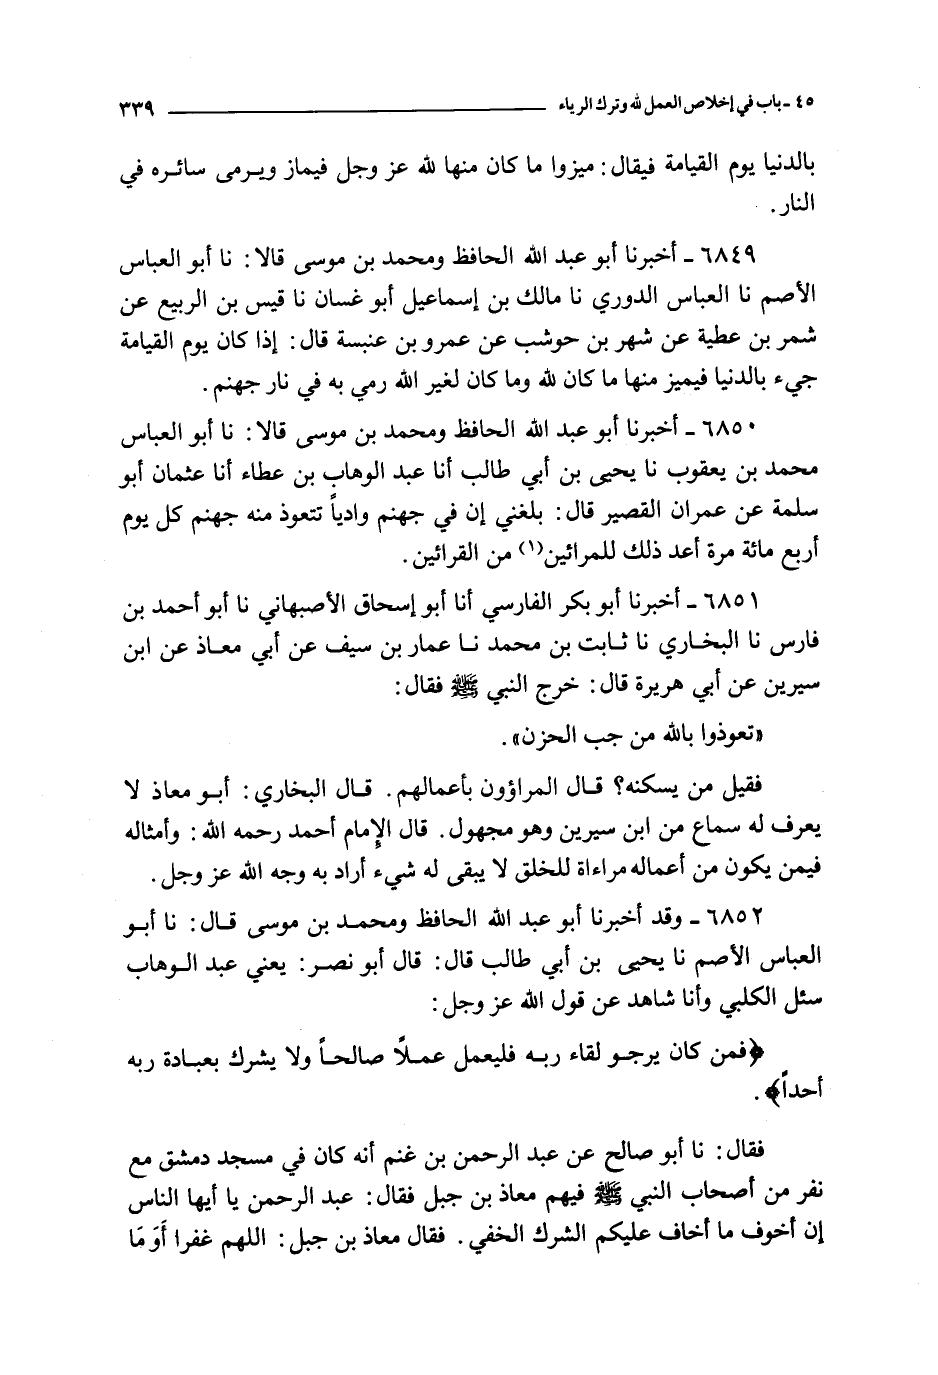 ٤٥ - باب في إخلاص العمل لله وترك الرياء ٣٣٩
بالدنيا يوم القيامة فيقال: ميزوا ما كان منها لله عز وجل فيماز ويرمى سائره في
النار.
٦٨٤٩ - أخبرنا أبو عبد الله الحافظ ومحمد بن موسى قالا: نا أبو العباس
الأصم نا العباس الدوري نا مالك بن إسماعيل أبو غسان نا قيس بن الربيع عن
شمر بن عطية عن شهر بن حوشب عن عمرو بن عنبسة قال: إذا كان يوم القيامة
جيء بالدنيا فيميز منها ما كان لله وما كان لغير الله رمي به في نار جهنم.
٦٨٥٠ - أخبرنا أبو عبد الله الحافظ ومحمد بن موسى قالا: نا أبو العباس
محمد بن يعقوب نا يحيى بن أبي طالب أنا عبد الوهاب بن عطاء أنا عثمان أبو
سلمة عن عمران القصير قال: بلغني إن في جهنم وادياً تتعوذ منه جهنم كل يوم
أربع مائة مرة أعد ذلك للمرائين(١) من القرائين.
٦٨٥١ - أخبرنا أبو بكر الفارسي أنا أبو إسحاق الأصبهاني نا أبو أحمد بن
فارس نا البخاري نا ثابت بن محمد نا عمار بن سيف عن أبي معاذ عن ابن
سيرين عن أبي هريرة قال: خرج النبي ﷺ فقال:
«تعوذوا بالله من جب الحزن».
فقيل من يسكنه؟ قال المراؤون بأعمالهم. قال البخاري: أبو معاذ لا
يعرف له سماع من ابن سيرين وهو مجهول. قال الإمام أحمد رحمه الله: وأمثاله
فيمن يكون من أعماله مراءاة للخلق لا يبقى له شيء أراد به وجه الله عز وجل.
٦٨٥٢ - وقد أخبرنا أبو عبد الله الحافظ ومحمد بن موسى قال: نا أبو
العباس الأصم نا يحيى بن أبي طالب قال: قال أبو نصر: يعني عبد الوهاب
سئل الكلبي وأنا شاهد عن قول الله عز وجل:
﴿فمن كان يرجو لقاء ربه فليعمل عملاً صالحاً ولا يشرك بعبادة ربه
أحداً﴾.
فقال: نا أبو صالح عن عبد الرحمن بن غنم أنه كان في مسجد دمشق مع
نفر من أصحاب النبي ﷺ فيهم معاذ بن جبل فقال: عبد الرحمن يا أيها الناس
إن أخوف ما أخاف عليكم الشرك الخفي. فقال معاذ بن جبل: اللهم غفرا أَوَ مَا